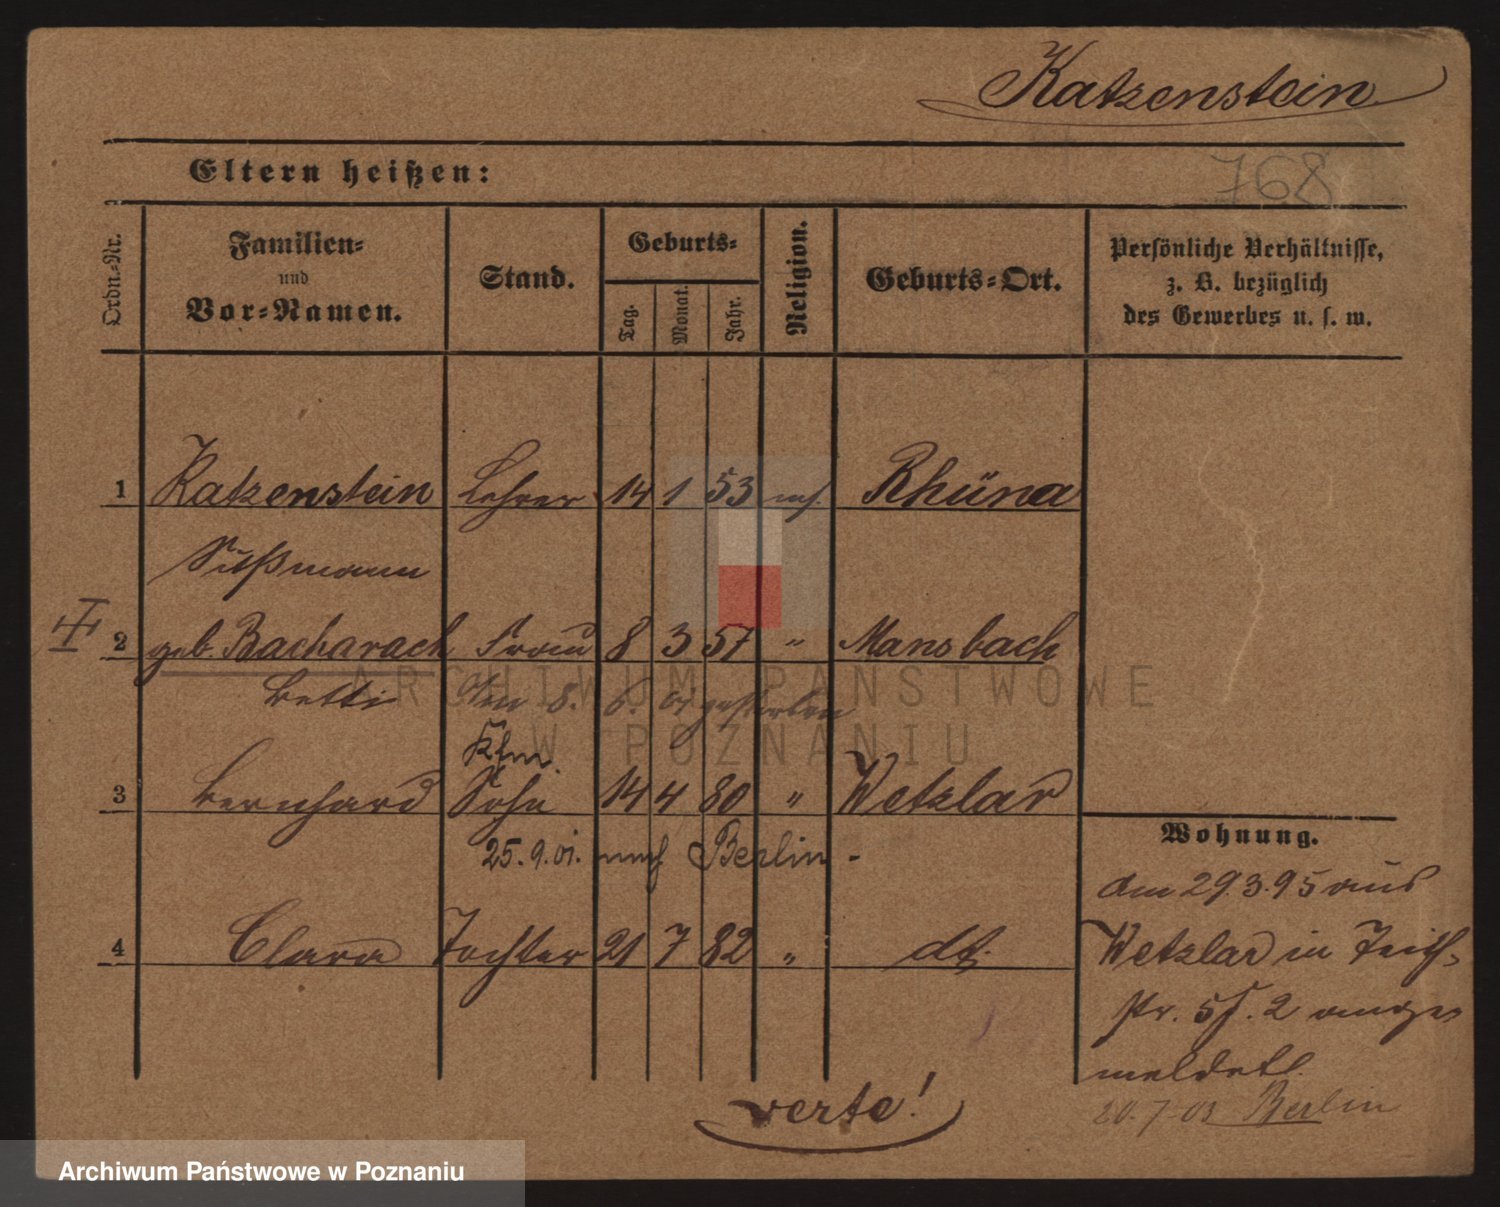 Katzenstein
768
Eltern heißen:
Ordn.-Nr.
Familien-
und
Vor-Namen.
Stand.
Geburts-
Tag.
Monat.
Jahr.
Religion.
Geburts-Ort.
Persönliche Verhältnisse,
z. B. bezüglich
des Gewerbes u. s. w.
1 Katzenstein Lehrer 14 1 53 mos. Rhüna
Süßmann
2 geb. Bacharach Frau 8 3 57 " Mansbach
Betti den 8. 6. 01 gestorben
Kfm.
3 Bernhard Sohn 14 4 80 " Wetzlar
25.9.01. nach Berlin -
4 Clara Tochter 21 7 82 " dt.
Wohnung.
Am 29.3.95 aus
Wetzlar in
str. 5 I. 2 ange-
meldet.
20.7.03 Berlin
verte!
ARCHIWUM PAŃSTWOWE
W POZNANIU
Archiwum Państwowe w Poznaniu